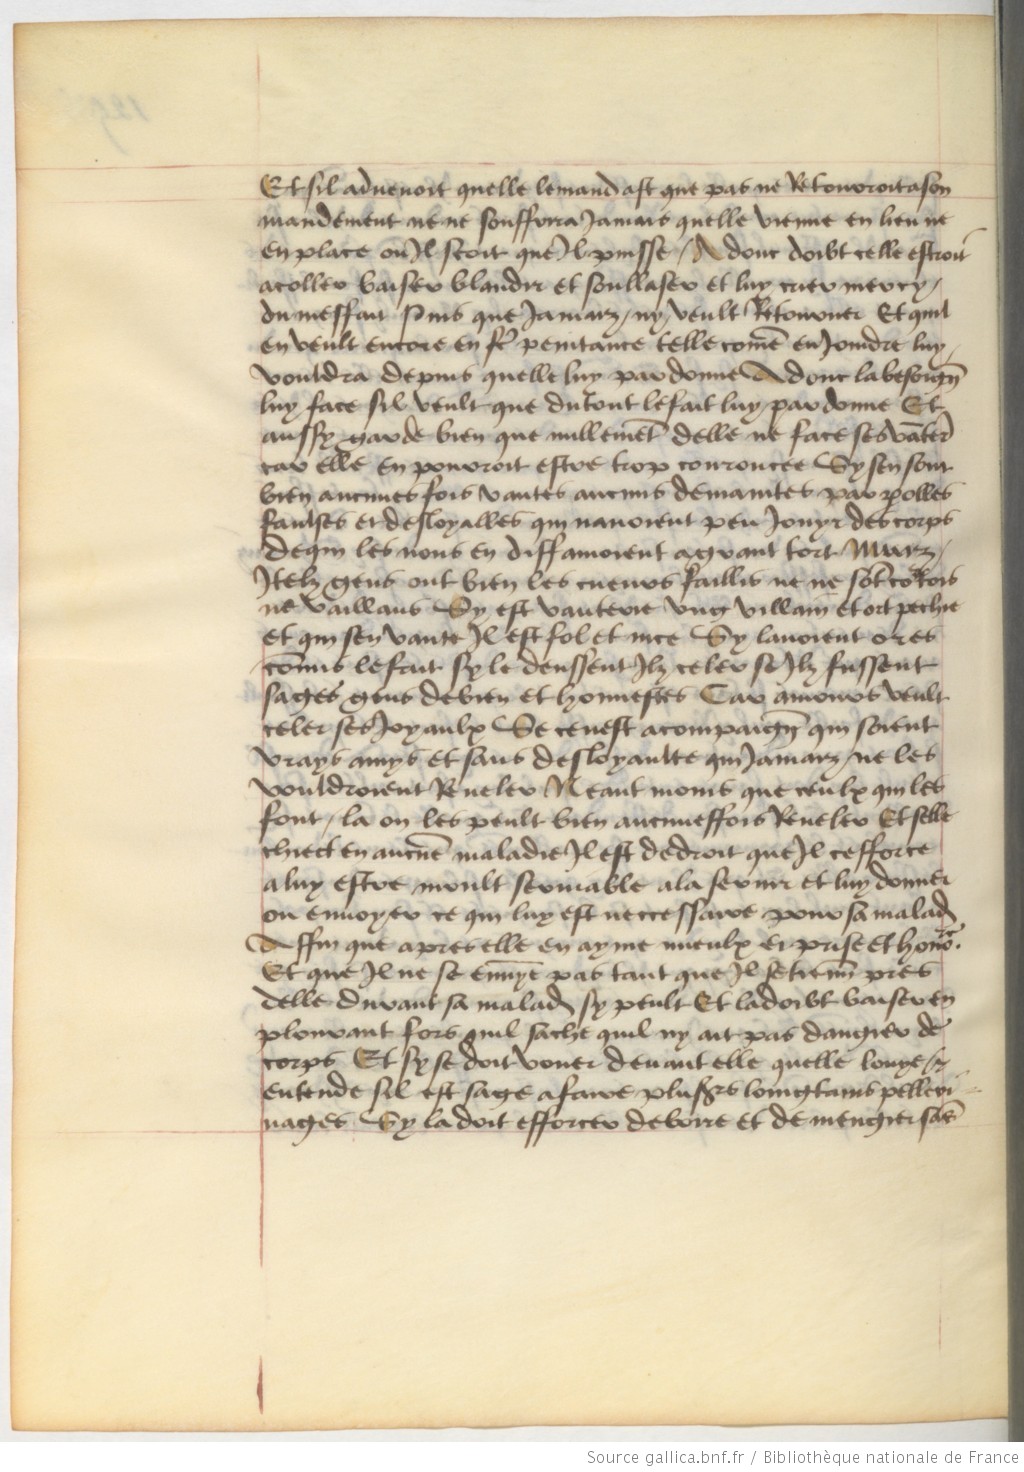 Et sil aduenoit quelle lemandast que pas ne Retourroit a son
mandement ne ne souffrira Jamais quelle vienne en lieu ne
en place ou Jl seoit que Jl puisse / Adonc doibt celle estroit
acoller baiser blandir et soullaser et luy crier mercy /
du meffait Puis que Jamaiz / ny veult Retourner Et quil
en veult encore en fē penitance telle comē enJoindre luy /
vouldra depuis quelle luy pardonne Adonc la besoigñ
luy face sil veult que du tout le fait luy pardonne Et
aussy garde bien que nullemēt delle ne face ses vāter
car elle en pourroit estre trop couroucee Sy sen sont
bien aucunes fois vantes aucuns demanites par polles
faulses et desloyalles qui nauoient peu Jouyr des corps
de qui les nons en diffamoient a grant tort Maiz /
Jtelz gens ont bien les cueurs faillis ne ne sōt cortois
ne vaillans Sy est vanterie vng villain et ort pechie
et qui sen vante Jl est fol et nice Sy lauoient ores
cōmis le fait sy le deussent Jlz celer se Jlz fussent
sages gens de bien et honnestes Car amours veult
celer ses Joyaulx Se ce nest a compaigñ qui soient
vrays amys et sans desloyaulte qui Jamaiz / ne les
vouldroient Reueler Neant moins que ceulx qui les
font / la ou les peult bien aucuneffois Reueler Et selle
chiect en aucūe maladie Jl est de droit que Jl cefforce
a luy estre moult seruiable a la seruir et luy donner
ou enuoyer ce qui luy est neccessaire pour sa malad
Affin que apres elle en ayme mieulx et prise et honō.
Et que Jl ne se ennuye pas tant que Jl se tienn pres
delle durant sa malad sy peult Et la doibt baiser en
plourant fors quil sache quil ny ait pas dangier de
corps Et sy se doit vouer deuant elle quelle louye /
entende sil est sage a faire plusrs loingtains pelleri
nages Sy la doit efforcer de boire et de mengier sās
Source gallica.bnf.fr / Bibliothèque nationale de France